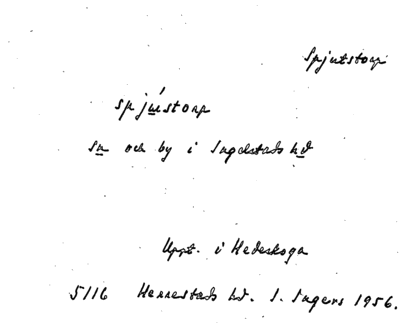 Spjutstorp
spjústorp
sn och by i Ingelstads hd
Uppt. i Hedeskoga
5116 Herrestads hd. I. Ingers 1956.